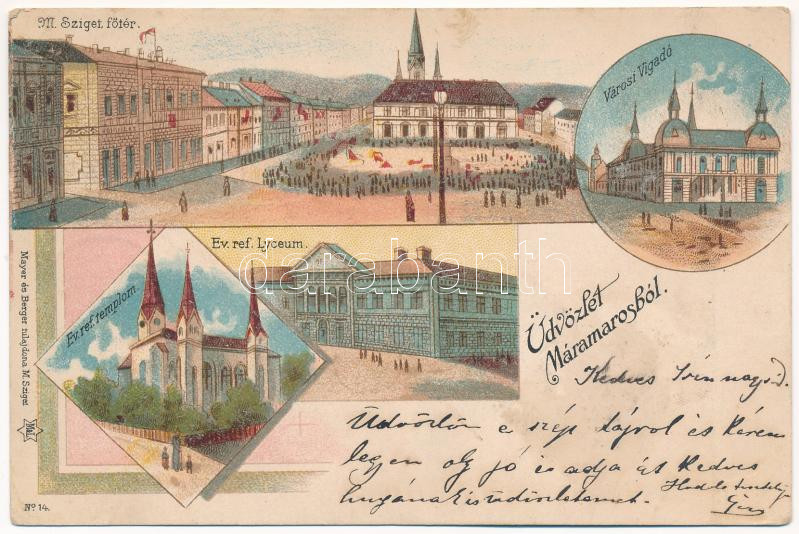 M. Sziget főtér.
Városi Vigadó
Ev. ref. Lyceum.
Ev. ref. templom.
Üdvözlet
Máramarosból.
Mayer és Berger tulajdona M. Sziget
No 14.
darabanth
Kedves
Üdvözlöm e szép tájról és kérem
legyen oly jó és adja át kedves
hugának is üdvözletemet.